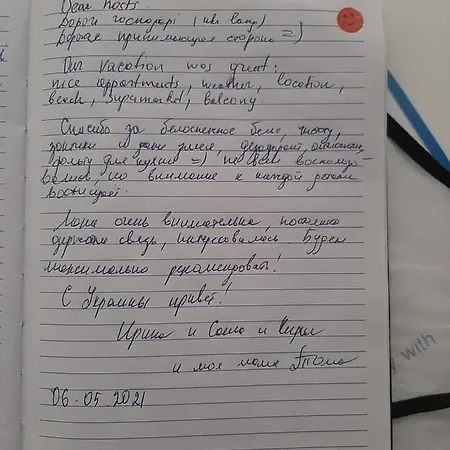 Dear hosts.
Дорогі господарі (ukr lang)
Дорогая принимающая сторона =)
Our vacation was great:
nice appartments, weather, location,
beach, supermarket, balcony.
Спасибо за белоснежное белье, чистоту,
даже дезодорант,
для кухни =) не всем воспользо-
вались, но внимание к каждой детали
восхищает.
очень внимательна, постоянно
держала связь, интересовалась. Будем
максимально рекомендовать!
С Украины привет!
Ирина и Саша и
и моя мама
06.05.2021
with